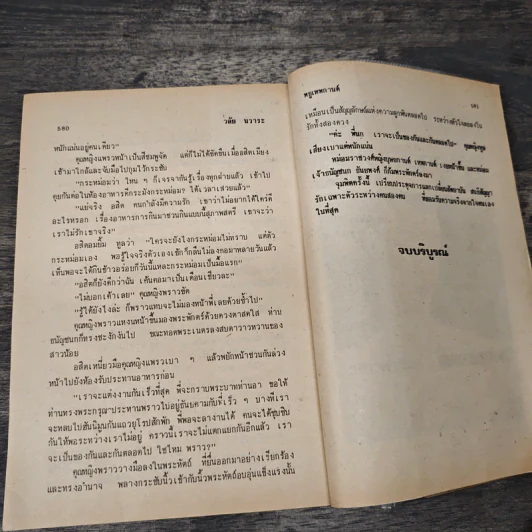 ๖๘๐
วลัย นวาระ
หนักแน่นอยู่คนเดียว"
คุณหญิงแพรวหน้าเป็นสีชมพูจัด แต่ก็ไม่ได้ขัดขืนเมื่ออสิตเมียง
เข้ามาใกล้และจับมือไปกุมไว้กระชับ
"กระหม่อมว่า ไหน ๆ ก็เจรจากันรู้เรื่องทุกฝ่ายแล้ว เข้าไป
คุยกันต่อในห้องอาหารดีกระมังกระหม่อม ได้เวลาเสวยแล้ว"
"แย่จริง อสิต คนกำลังมีความรัก เขาว่าไม่อยากได้ใครดี
อะไรหรอก เรื่องอาหารการกินมาชวนกันแบบนี้สุภาพสตรี เขาจะว่า
เราไม่รักเขาจริง"
อสิตอมยิ้ม ทูลว่า "ใครจะยังไงกระหม่อมไม่ทราบ แต่ตัว
กระหม่อมเอง พอรู้ใจจริงตัวเองเข้าก็กลืนไม่ลงคอมาหลายวันแล้ว
เห็นพอจะได้กินข้าวอร่อยก็วันนี้แหละกระหม่อมเป็นมื้อแรก"
"อสิตก็ยังดีกว่าฉัน เห็นคอมาเป็นเดือนเชียวละ"
"ไม่บอกเค้าเลย" คุณหญิงพราวขัด
"รู้ได้ยังไงล่ะ ก็พราวแทบจะไม่มองหน้าพี่เลยด้วยซ้ำไป"
คุณหญิงพราวแหงนหน้าขึ้นมองพระพักตร์ด้วยดวงตาสดใส ท่าน
ธนัญชนกก็ทรงชะงักงันไป ขณะทอดพระเนตรลงสบตาวาวหวานของ
สาวน้อย
อสิตเหนี่ยวมือคุณหญิงแพรวเบา ๆ แล้วพยักหน้าชวนกันล่วง
หน้าไปยังห้องรับประทานอาหารก่อน
"เราจะแต่งงานกันเร็วที่สุด พี่จะกราบพระบาทท่านอา ขอให้
ท่านทรงพระกรุณาประทานพราวไปอยู่ธันยคามกับพี่เร็ว ๆ บางทีเรา
จะหลบไปฮันนีมูนกันแถวยุโรปสักพัก พี่พอจะลางานได้ คนจะได้ซุบซิบ
กันให้พอระหว่างเราไม่อยู่ คราวนี้เราจะไม่แตกแยกกันอีกแล้ว เรา
จะเป็นของกันและกันตลอดไป ใช่ไหม พราว?"
คุณหญิงพราววางมือลงในพระหัตถ์ ที่ยื่นออกมาอย่างเรียกร้อง
และทรงอำนาจ พลางกระชับนิ้วเข้ากับนิ้วพระหัตถ์อบอุ่นแข็งแรงนั้น
หรูเทพกานต์
๖๘๑
เหมือนเป็นสัญญลักษณ์แห่งความผูกพันตลอดไป ระหว่างดวงใจสองดวงใน
รักทั้งสองดวง
"ค่ะ พี่นก เราจะเป็นของกันและกันตลอดไป" คุณหญิงทูล
เสียงเบาแต่หนักแน่น
ในที่สุด
จบบริบูรณ์